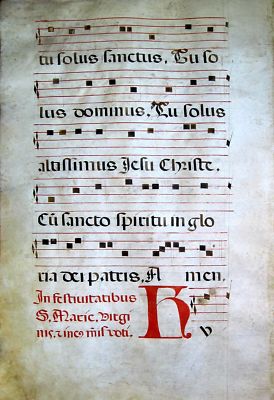 tu solus sanctus, Tu so
lus dominus, Tu solus
altissimus Jesu Christe.
Cũ sancto spiritu in glo
ria dei patris, A men.
In festivitatibus
S. Marie. Virgi
nis,
K v